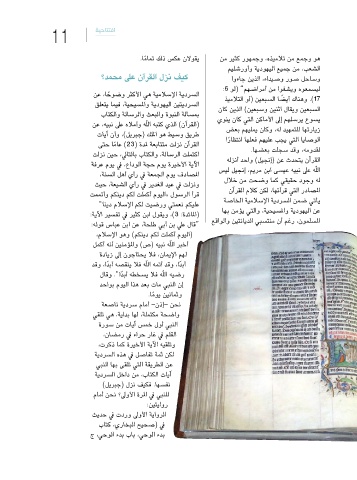 11
الافتتاحية
هو وجمع من تلاميذه، وجمهور كثير من
الشعب، من جميع اليهودية وأورشليم
وساحل صور وصيداء، الذين جاءوا
ليسمعوه ويشفوا من أمراضهم" (لو 6:
17). وهناك أيضًا السبعين (أو التلاميذ
السبعين ويقال اثنين وسبعين) الذين كان
يسوع يرسلهم إلى الأماكن التي كان ينوي
زيارتها للتمهيد له، وكان يمليهم بعض
الوصايا التي يجب عليهم فعلها انتظارًا
لقدومه، وقد سجلت بعضها.
القرآن يتحدث عن (إنجيل) واحد أنزله
الله على نبيه عيسى ابن مريم، إنجيل ليس
له وجود حقيقي كما وضحت من خلال
المصادر التي قرأتها، لكن كلام القرآن
يأتي ضمن السردية الإسلامية الخاصة
عن اليهودية والمسيحية، والتي يؤمن بها
المسلمون، رغم أن منتسبي الديانتين والواقع
يقولان عكس ذلك تمامًا.
كيف نزل القرآن على محمد؟
السردية الإسلامية هي الأكثر وضوحًا، عن
السرديتين اليهودية والمسيحية، فيما يتعلق
بمسألة النبوة والبعث والرسالة والكتاب
(القرآن) الذي كتبه الله وأملاه على نبيه، عن
طريق وسيط هو الملك (جبريل)، وأن آيات
القرآن نزلت متتابعة لمدة (23) عامًا حتى
اكتملت الرسالة، والكتاب بالتالي، حين نزلت
الآية الأخيرة يوم حجة الوداع، في يوم عرفة
المصادف يوم الجمعة في رأي أهل السنة،
ونزلت في عيد الغدير في رأي الشيعة، حيث
قرأ الرسول "اليوم أكملت لكم دينكم وأتممت
عليكم نعمتي ورضيت لكم الإسلام دينًا"
(المائدة: 3)، ويقول ابن كثير في تفسير الآية
"قال علي بن أبي طلحة، عن ابن عباس قوله:
(اليوم أكملت لكم دينكم) وهو الإسلام،
أخبر الله نبيه (ص) والمؤمنين أنه أكمل
لهم الإيمان، فلا يحتاجون إلى زيادة
أبدًا، وقد أتمه الله فلا ينقصه أبدًا، وقد
رضيه الله فلا يسخطه أبدًا". وقال
إن النبي مات بعد هذا اليوم بواحد
وثمانين يومًا.
نحن –إذن– أمام سردية ناصعة
واضحة مكتملة، لها بداية، هي تلقي
النبي أول خمس آيات من سورة
القلم في غار حراء في رمضان،
وتلقيه الآية الأخيرة كما ذكرت،
لكن ثمة تفاصيل في هذه السردية
عن الطريقة التي تلقى بها النبي
آيات الكتاب، من داخل السردية
نفسها. فكيف نزل (جبريل)
للنبي في المرة الأولى؟ نحن أمام
روايتين:
الرواية الأولى وردت في حديث
في (صحيح البخاري، كتاب
بدء الوحي، باب بدء الوحي، ج